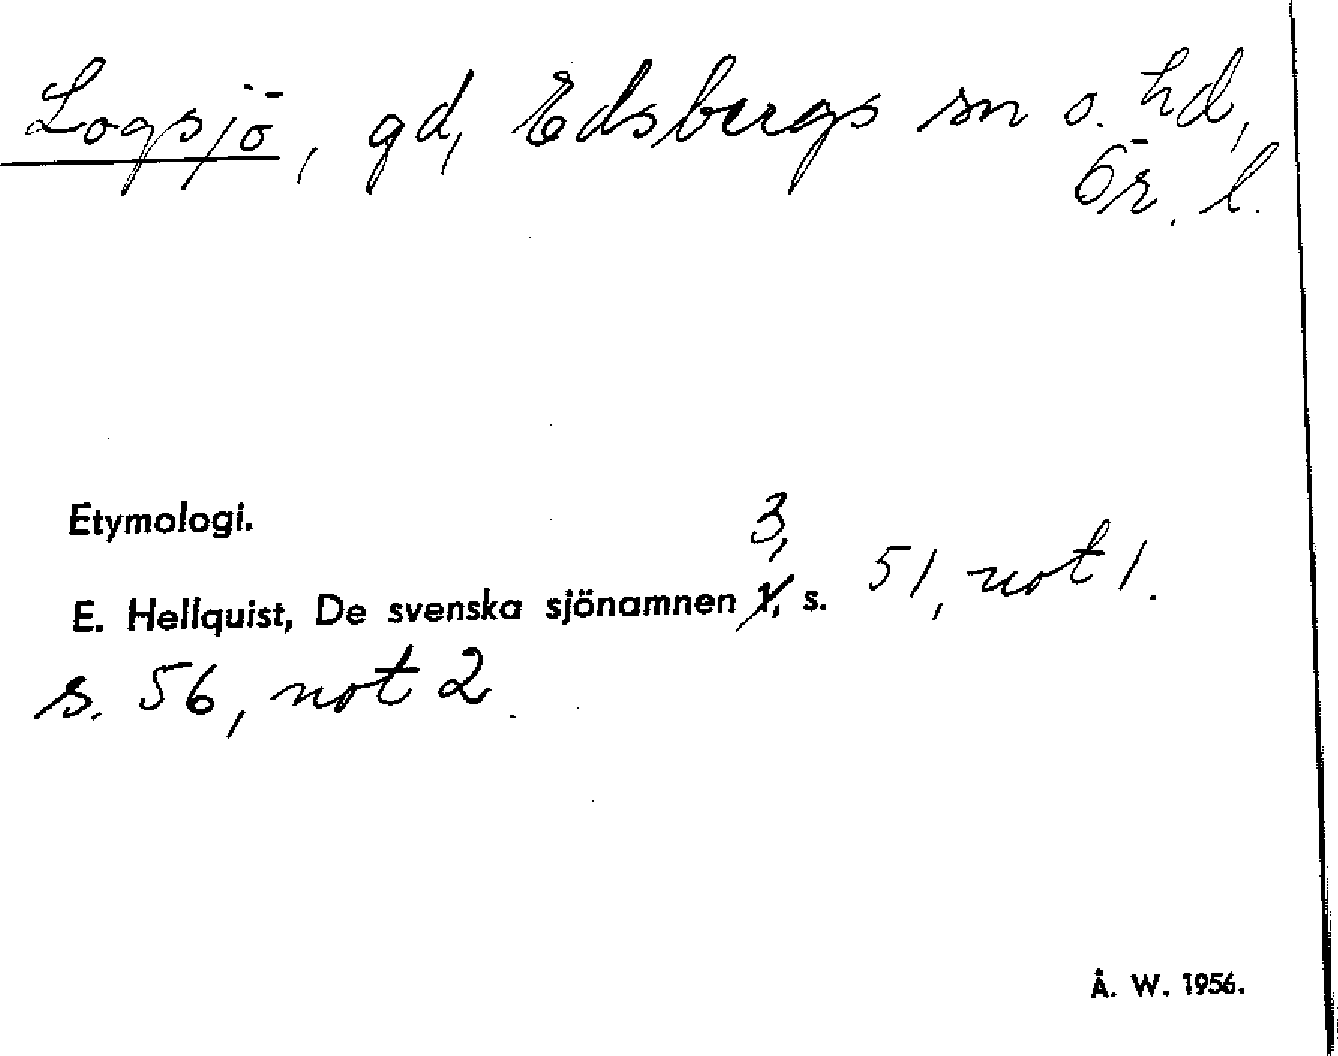 Logsjö, gd, Edsbergs sn o. hd,
Ör. l.
Etymologi.
3,
E. Hellquist, De svenska sjönamnen 1, s. 51, not 1.
s. 56, not 2.
Å. W. 1956.